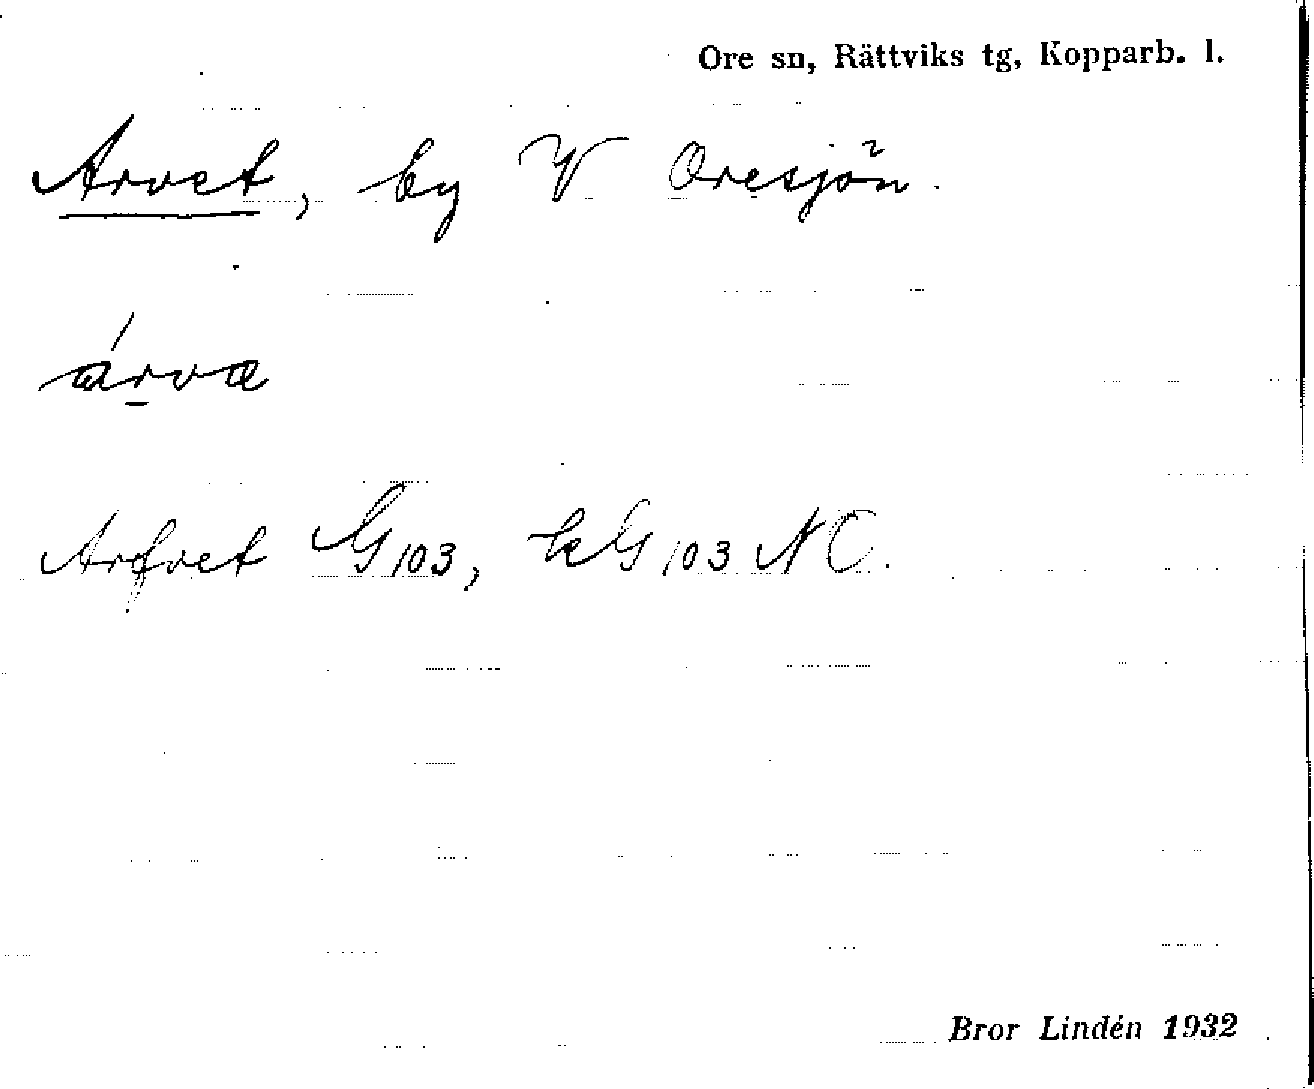 Ore sn, Rättviks tg, Kopparb. l.
Arvet, by V Oresjön.
árvæ
Arfvet G 103, kG 103 NO.
Bror Lindén 1932